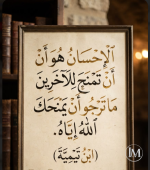 الْإِحْسَانُ هُوَ أَنْ
أَنْ تَمْنَحَ لِلْآخَرِينَ
مَا تَرْجُو أَنْ يَمْنَحَكَ
اللهُ إِيَّاهُ.
(ابْنُ تَيْمِيَّة)
M